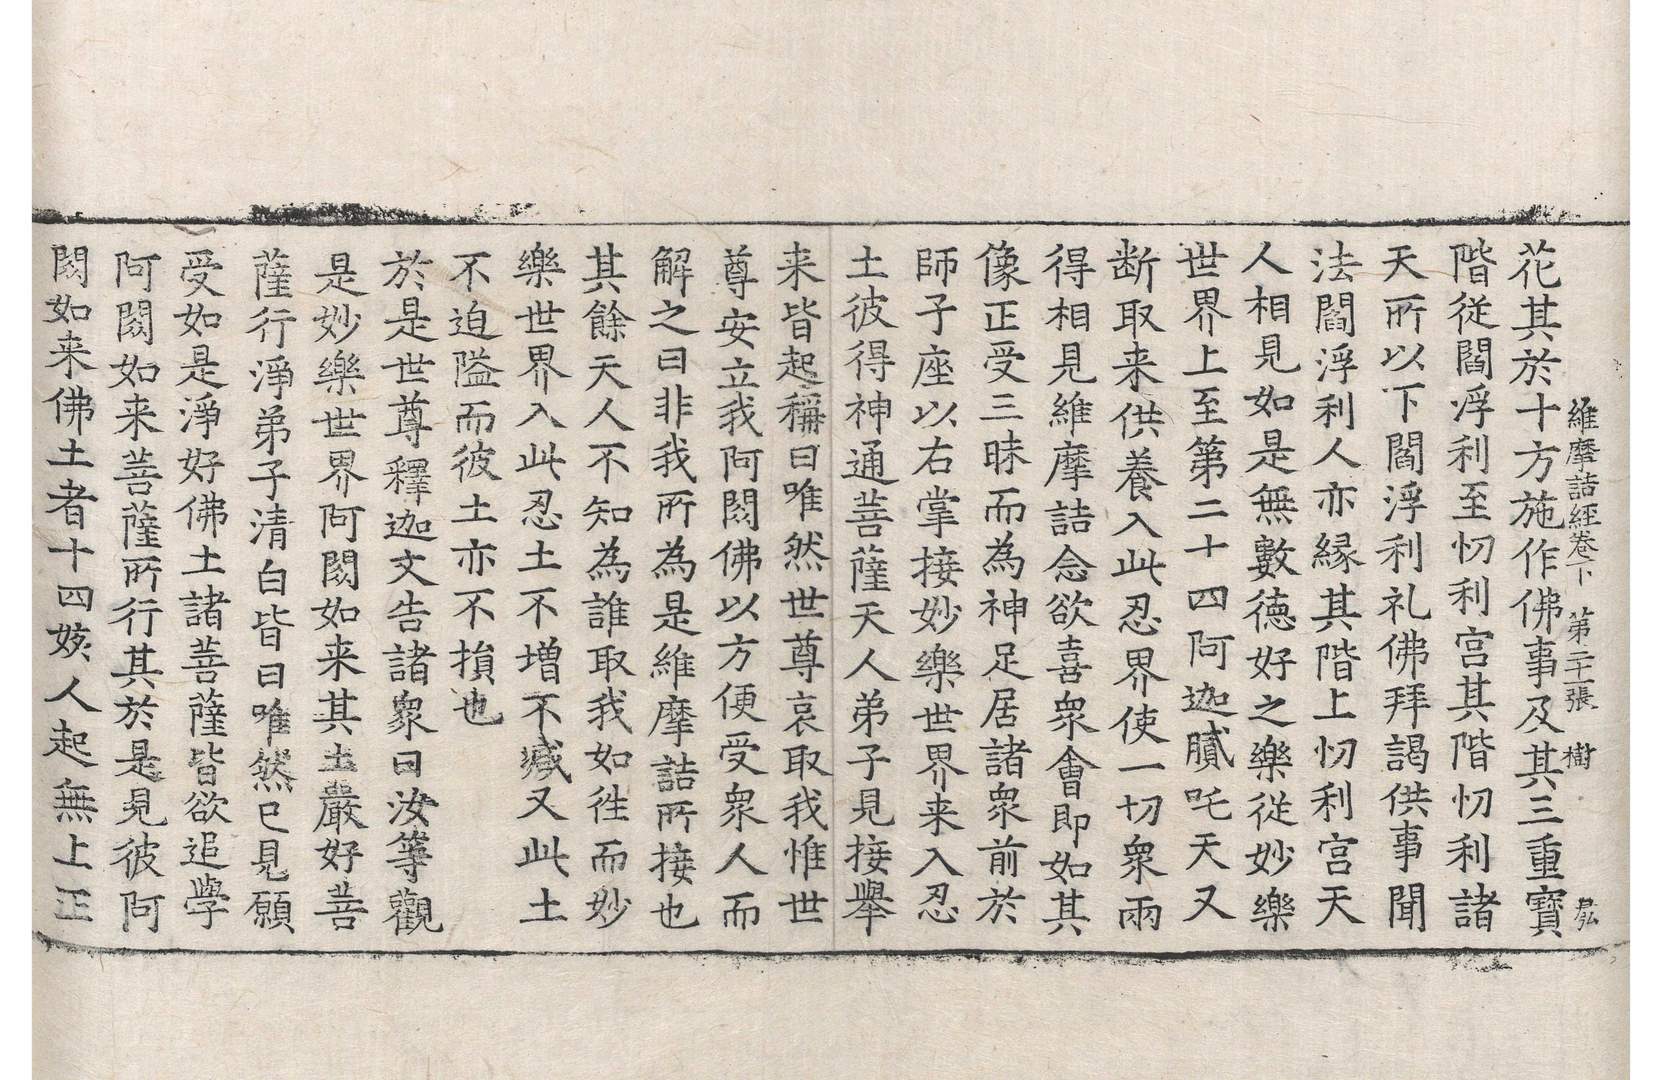 維摩詰經卷下 第二十張 樹
花其於十方施作佛事及其三重寶
階從閻浮利至忉利宮其階忉利諸
天所以下閻浮利礼佛拜謁供事聞
法閻浮利人亦緣其階上忉利宮天
人相見如是無數德好之樂從妙樂
世界上至第二十四阿迦膩吒天又
断取来供養入此忍界使一切衆兩
得相見維摩詰念欲喜衆會即如其
像正受三昧而為神足居諸衆前於
師子座以右掌接妙樂世界来入忍
土彼得神通菩薩天人弟子見接舉
来皆起稱曰唯然世尊哀取我惟世
尊安立我阿閦佛以方便受衆人而
解之曰非我所為是維摩詰所接也
其餘天人不知為誰取我如徃而妙
樂世界入此忍土不增不减又此土
不迫隘而彼土亦不損也
於是世尊釋迦文告諸衆曰汝等觀
是妙樂世界阿閦如来其土嚴好菩
薩行淨弟子清白皆曰唯然已見願
受如是淨好佛土諸菩薩皆欲追學
阿閦如来菩薩所行其於是見彼阿
閦如来佛土者十四姟人起無上正